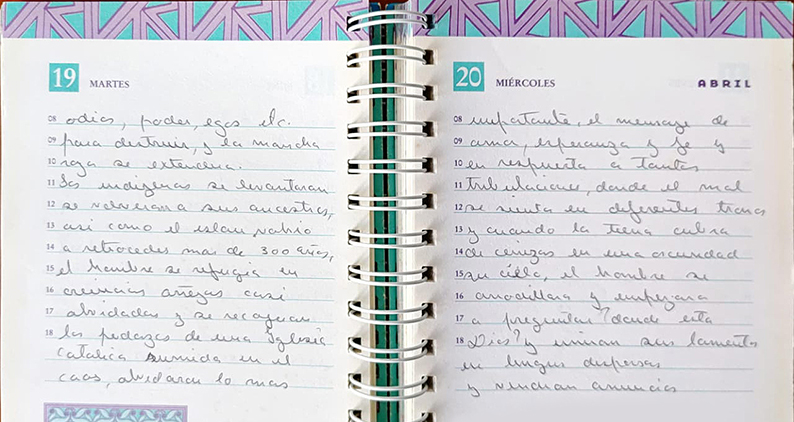 19 MARTES
08 odios, poder, egos etc.
09 para destruir, y la mancha
10 roja se extendera.
11 Los indigenas se levantaran
12 se volveran a sus ancestros,
13 asi como el islam volvio
14 a retroceder mas de 300 años,
15 el hombre se refugia en
16 creencias añejas casi
17 olvidadas y se recogeran
18 los pedazos de una Iglesia
catolica sumida en el
caos, olvidaran lo mas
20 MIÉRCOLES ABRIL
08 importante, el mensaje de
09 amor, esperanza y fe y
10 en respuesta a tantas
11 tribulaciones, donde el mal
12 se sienta en diferentes tronos
13 y cuando la tierra cubra
14 de cenizas en una oscuridad
15 su cielo, el hombre se
16 arrodillara y empezara
17 a preguntar? donde esta
18 Dios? y uniran sus lamentos
en lenguas dispersas
y vendran anuncios